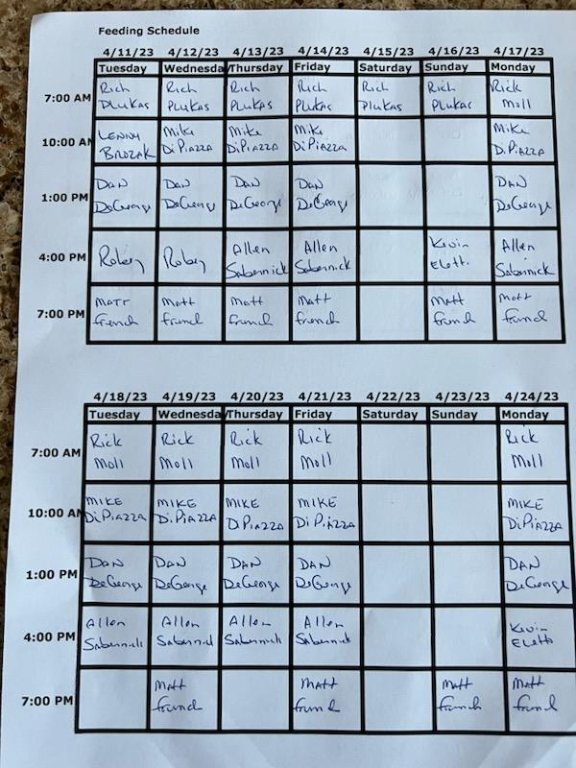 Feeding Schedule
4/11/23 4/12/23 4/13/23 4/14/23 4/15/23 4/16/23 4/17/23
Tuesday Wednesda Thursday Friday Saturday Sunday Monday
Rich Rich Rich Rich Rich Rich Rick
7:00 AM Plukas Plukas Plukas Plukas Plukas Plukas Moll
Lenny Mike Mike Mike Mike
10:00 AM Brozak DiPiazza DiPiazza DiPiazza DiPiazza
Dan Dan Dan Dan Dan
1:00 PM DeGeorge DeGeorge DeGeorge DeGeorge DeGeorge
Allen Allen Kevin Allen
4:00 PM Eletto
Matt Matt Matt Matt Matt Matt
7:00 PM French French French French French French
4/18/23 4/19/23 4/20/23 4/21/23 4/22/23 4/23/23 4/24/23
Tuesday Wednesda Thursday Friday Saturday Sunday Monday
Rick Rick Rick Rick Rick
7:00 AM Moll Moll Moll Moll Moll
MIKE MIKE MIKE MIKE MIKE
10:00 AM DiPiazza DiPiazza DiPiazza DiPiazza DiPiazza
DAN DAN DAN DAN DAN
1:00 PM DeGeorge DeGeorge DeGeorge DeGeorge DeGeorge
Allen Allen Allen Allen Kevin
4:00 PM Eletto
Matt Matt Matt Matt
7:00 PM French French French French